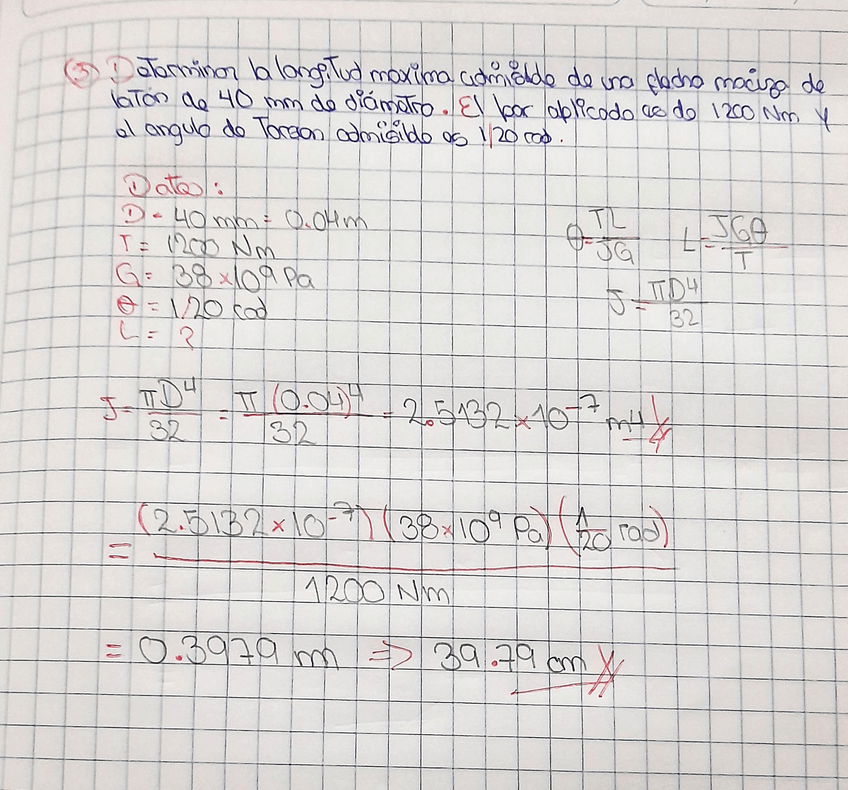 ③ Determinar la longitud maxima admisible de una flecha maciza de
latón de 40 mm de diámetro. El par aplicado es de 1200 Nm y
el angulo de Torsion admisible es 1/20 rad.
Datos:
D = 40 mm = 0.04m
T = 1200 Nm
G = 38×10⁹ Pa
θ = 1/20 rad
L = ?
θ = TL/JG L = JGθ/T
J = πD⁴/32
J = πD⁴/32 = π(0.04)⁴/32 = 2.5132×10⁻⁷ m4
= (2.5132×10⁻⁷)(38×10⁹ Pa)(1/20 rad)/1200 Nm
= 0.3979 m ⇒ 39.79 cm